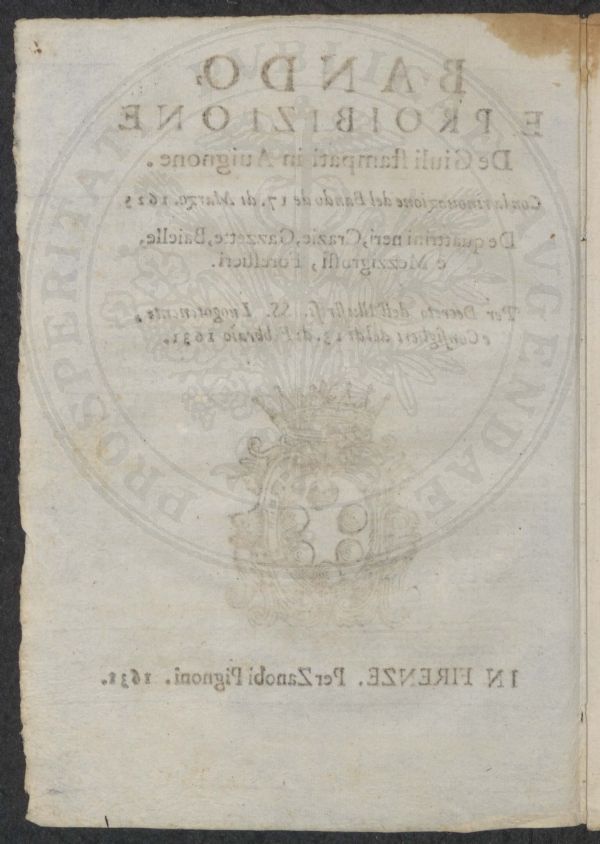 BANDO,
E PROIBIZIONE
De Giuli stampati in Auignone.
Con la rinouazione del Bando de 17. di Marzo. 1625
De quattrini neri, Crazie, Gazzette, Baielle,
e Mezzigrossi, Forestieri.
Per Decreto dell'Illustriss. SS. Luogotenente,
e Consiglieri del dì 13. di Febbraio 1631.
IN FIRENZE. Per Zanobi Pignoni. 1631.
PROSPERITATI
AVGENDAE